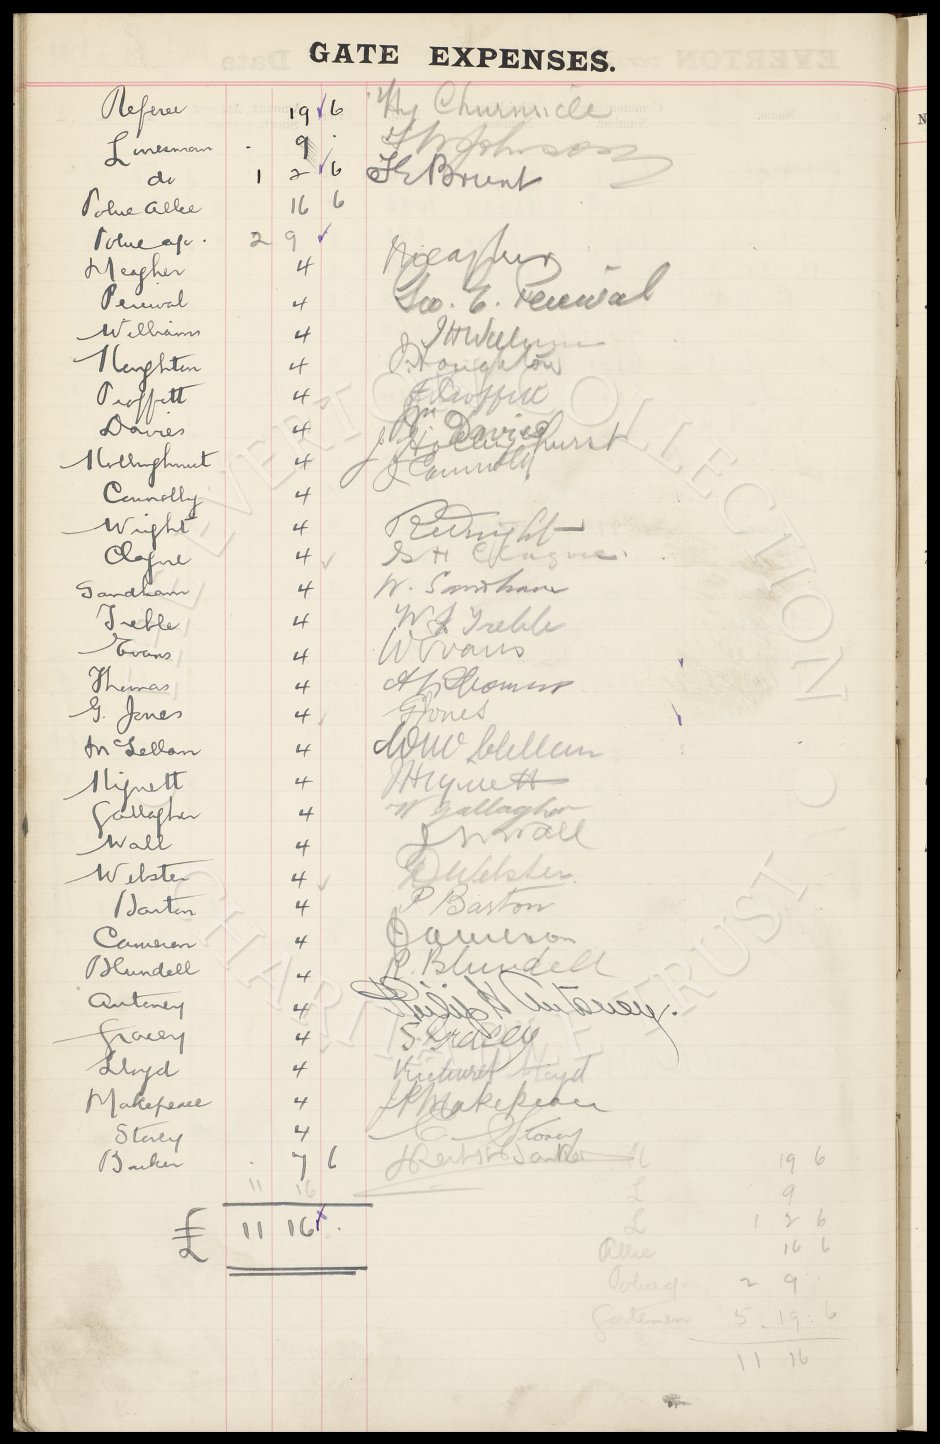 GATE EXPENSES.
Referee 19 6 Hy Churnicle
Linesman . 9 . Johnson
do 1 2 6 Brunt
Police allee 16 6
Police 2 9
Meagher 4 Meagher
Percival 4 Geo. E. Percival
Williams 4
Houghton 4 J. Houghton
Proffitt 4 Proffitt
Davies 4 Wm Davies
Hollinghurst 4 J Hollinghurst
Connolly 4 J Connolly
Wright 4 Wright
Clague 4 G H Clague.
Sandham 4 W. Sandham
Treble 4 W J Treble
Evans 4 W Evans
Thomas 4 Thomas
G. Jones 4 G Jones
McLellan 4 McLellan
Hignett 4 Hignett
Gallagher 4 W Gallagher
Wall 4 Wall
Webster 4 Webster
Barton 4 P Barton
Cameron 4 Cameron
Blundell 4 R. Blundell
Anteney 4 Philip H Anteney.
Gracey 4 S. Gracey
Lloyd 4 Lloyd
Makepeace 4 Makepeace
Storey 4 Storey
Barker . 7 6 Barker
11 16
£ 11 16 .
19 6
L 9
L 1 2 6
Allee 16 6
Police 2 9
Gatemen 5 . 19 . 6
11 16
EVERTON COLLECTION CHARITABLE TRUST